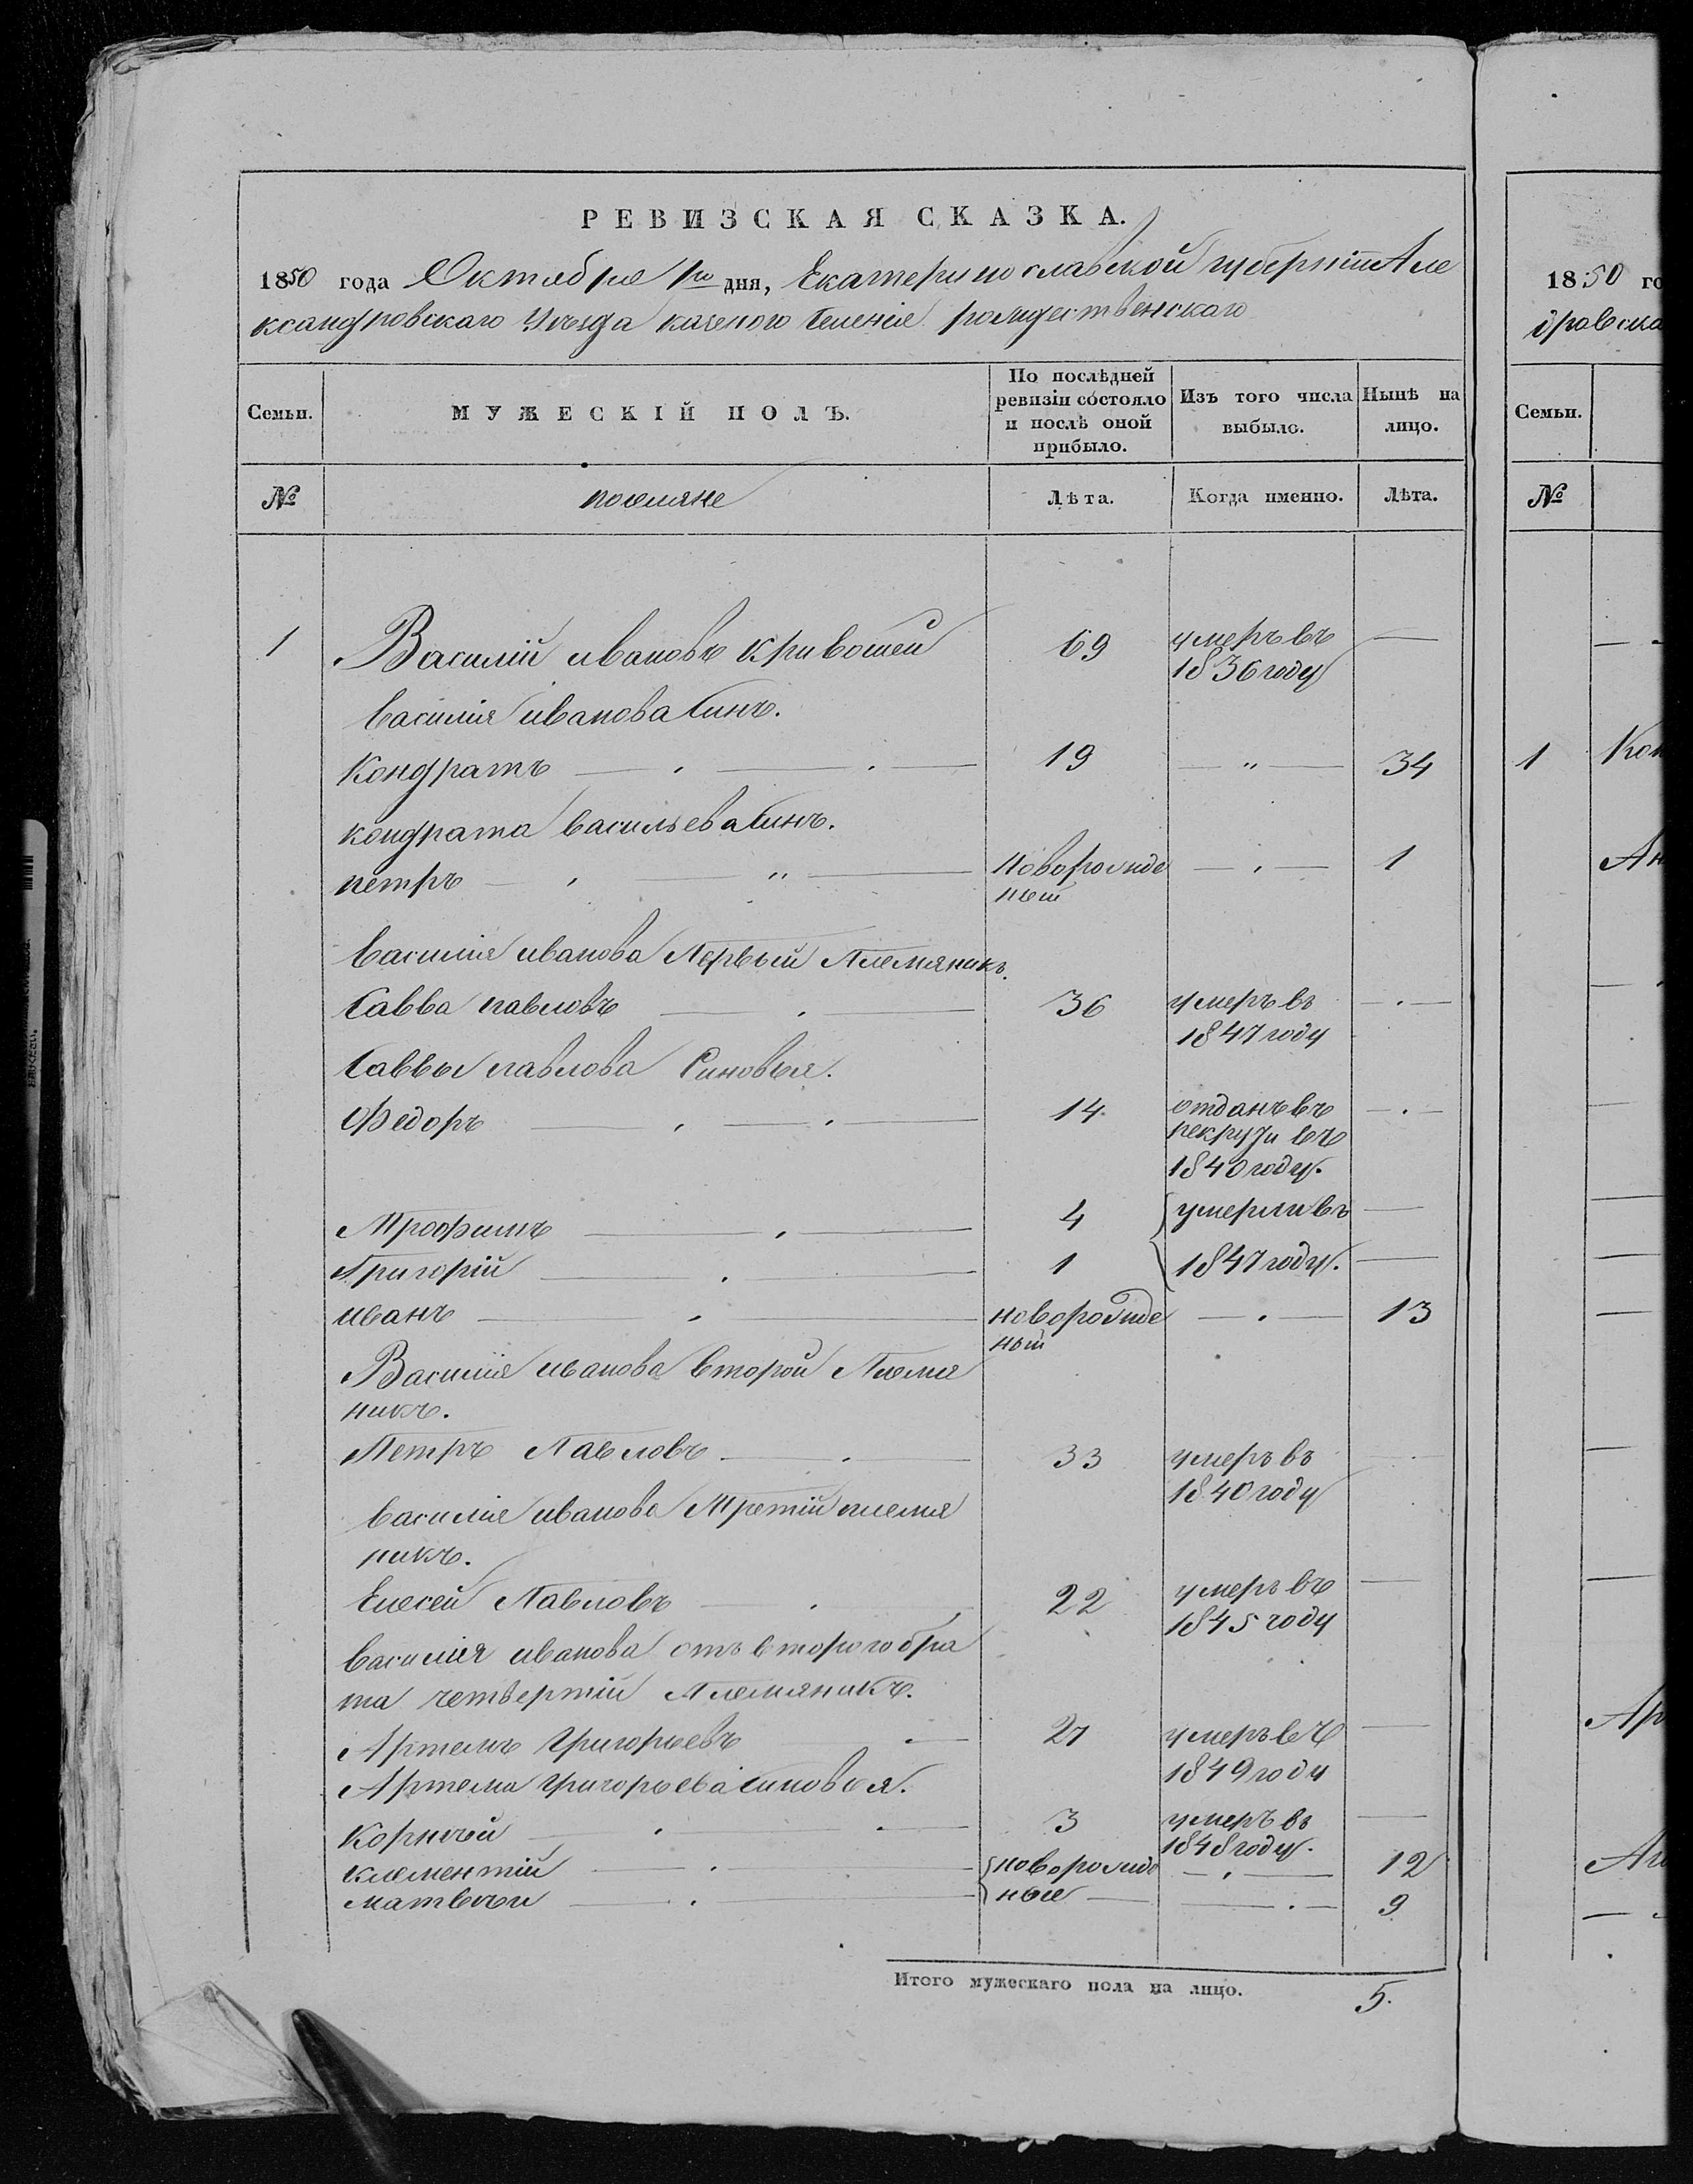 РЕВИЗСКАЯ СКАЗКА.
1850 года Октября 1го дня, Екатеринославской губерніи Але
ксандровскаго Уѣзда казеного Селенія рождественскаго
Семьи.
МУЖЕСКІЙ ПОЛЪ.
По послѣдней
ревизіи состояло
и послѣ оной
прибыло.
Изъ того числа
выбыло.
Нынѣ на
лицо.
№
поселяне
Лѣта.
Когда именно.
Лѣта.
1 Василій ивановъ кривошей 69 умеръ въ —
1836 году
василія иванова Синъ.
Кондратъ — 19 — " — 34
кондрата васильева Синъ.
петръ — " — новорожде — 1
ный
василія иванова Первый Племяникъ.
Савва павловъ — 36 умеръ въ —
1847 году
Саввы павлова Синовья.
Федоръ — 14 отданъ въ —
рекруты въ
1840 году.
Трофимъ — 4 умерли въ —
Григорій — 1 1847 году. —
иванъ — новорожде — 13
ный
Василія иванова второй Племя
никъ.
Петръ Павловъ — 33 умеръ въ
1840 году
василія иванова Третій племя
никъ.
Елесей Павловъ — 22 умеръ въ —
1845 году
василія иванова отъ второго бра
та четвертій Племяникъ.
Артемъ григорьевъ — 27 умеръ въ —
1849 году
Артема григорьева Синовья.
Корнѣй — 3 умеръ въ —
1848 году.
клементій — новорожде — 12
матвѣй — ные — 9
Итого мужескаго пола на лицо. 5.
1850 го
дровска
Семьи.
№
1 Кон
Ан
Ар